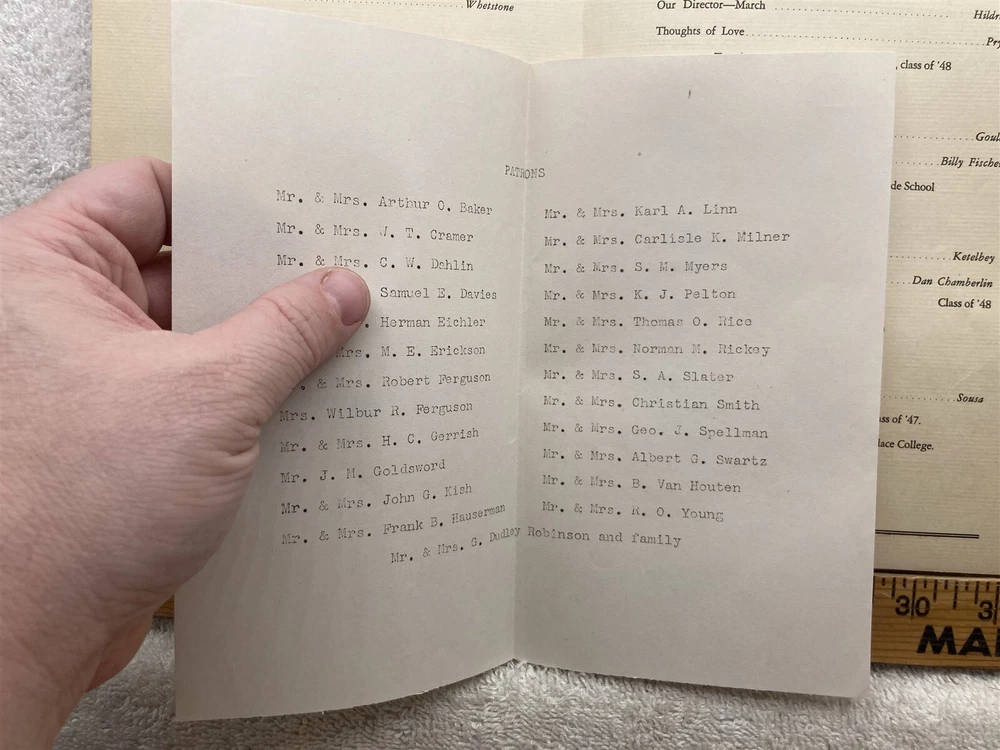 Whetstone
Our Director—March
Thoughts of Love
class of '48
Billy Fische
de School
Ketelbey
Dan Chamberlin
Class of '48
Sousa
ss of '47.
lace College.
PATRONS
Mr. & Mrs. Arthur O. Baker
Mr. & Mrs. W. T. Cramer
Mr. & Mrs. C. W. Dahlin
Samuel E. Davies
Herman Eichler
Mrs. M. E. Erickson
& Mrs. Robert Ferguson
Mrs. Wilbur R. Ferguson
Mr. & Mrs. H. C. Gerrish
Mr. J. M. Goldsword
Mr. & Mrs. John G. Kish
Mr. & Mrs. Frank B. Hauserman
Mr. & Mrs. Karl A. Linn
Mr. & Mrs. Carlisle K. Milner
Mr. & Mrs. S. M. Myers
Mr. & Mrs. K. J. Pelton
Mr. & Mrs. Thomas O. Rice
Mr. & Mrs. Norman M. Rickey
Mr. & Mrs. S. A. Slater
Mr. & Mrs. Christian Smith
Mr. & Mrs. Geo. J. Spellman
Mr. & Mrs. Albert G. Swartz
Mr. & Mrs. B. Van Houten
Mr. & Mrs. R. O. Young
Mr. & Mrs. G. Dudley Robinson and family
30 3
MA